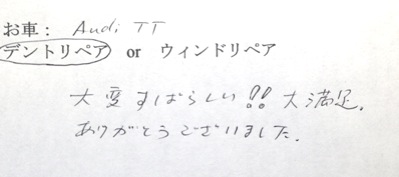 お車： Audi TT
デントリペア or ウィンドリペア
大変すばらしい!! 大満足.
ありがとうございました.